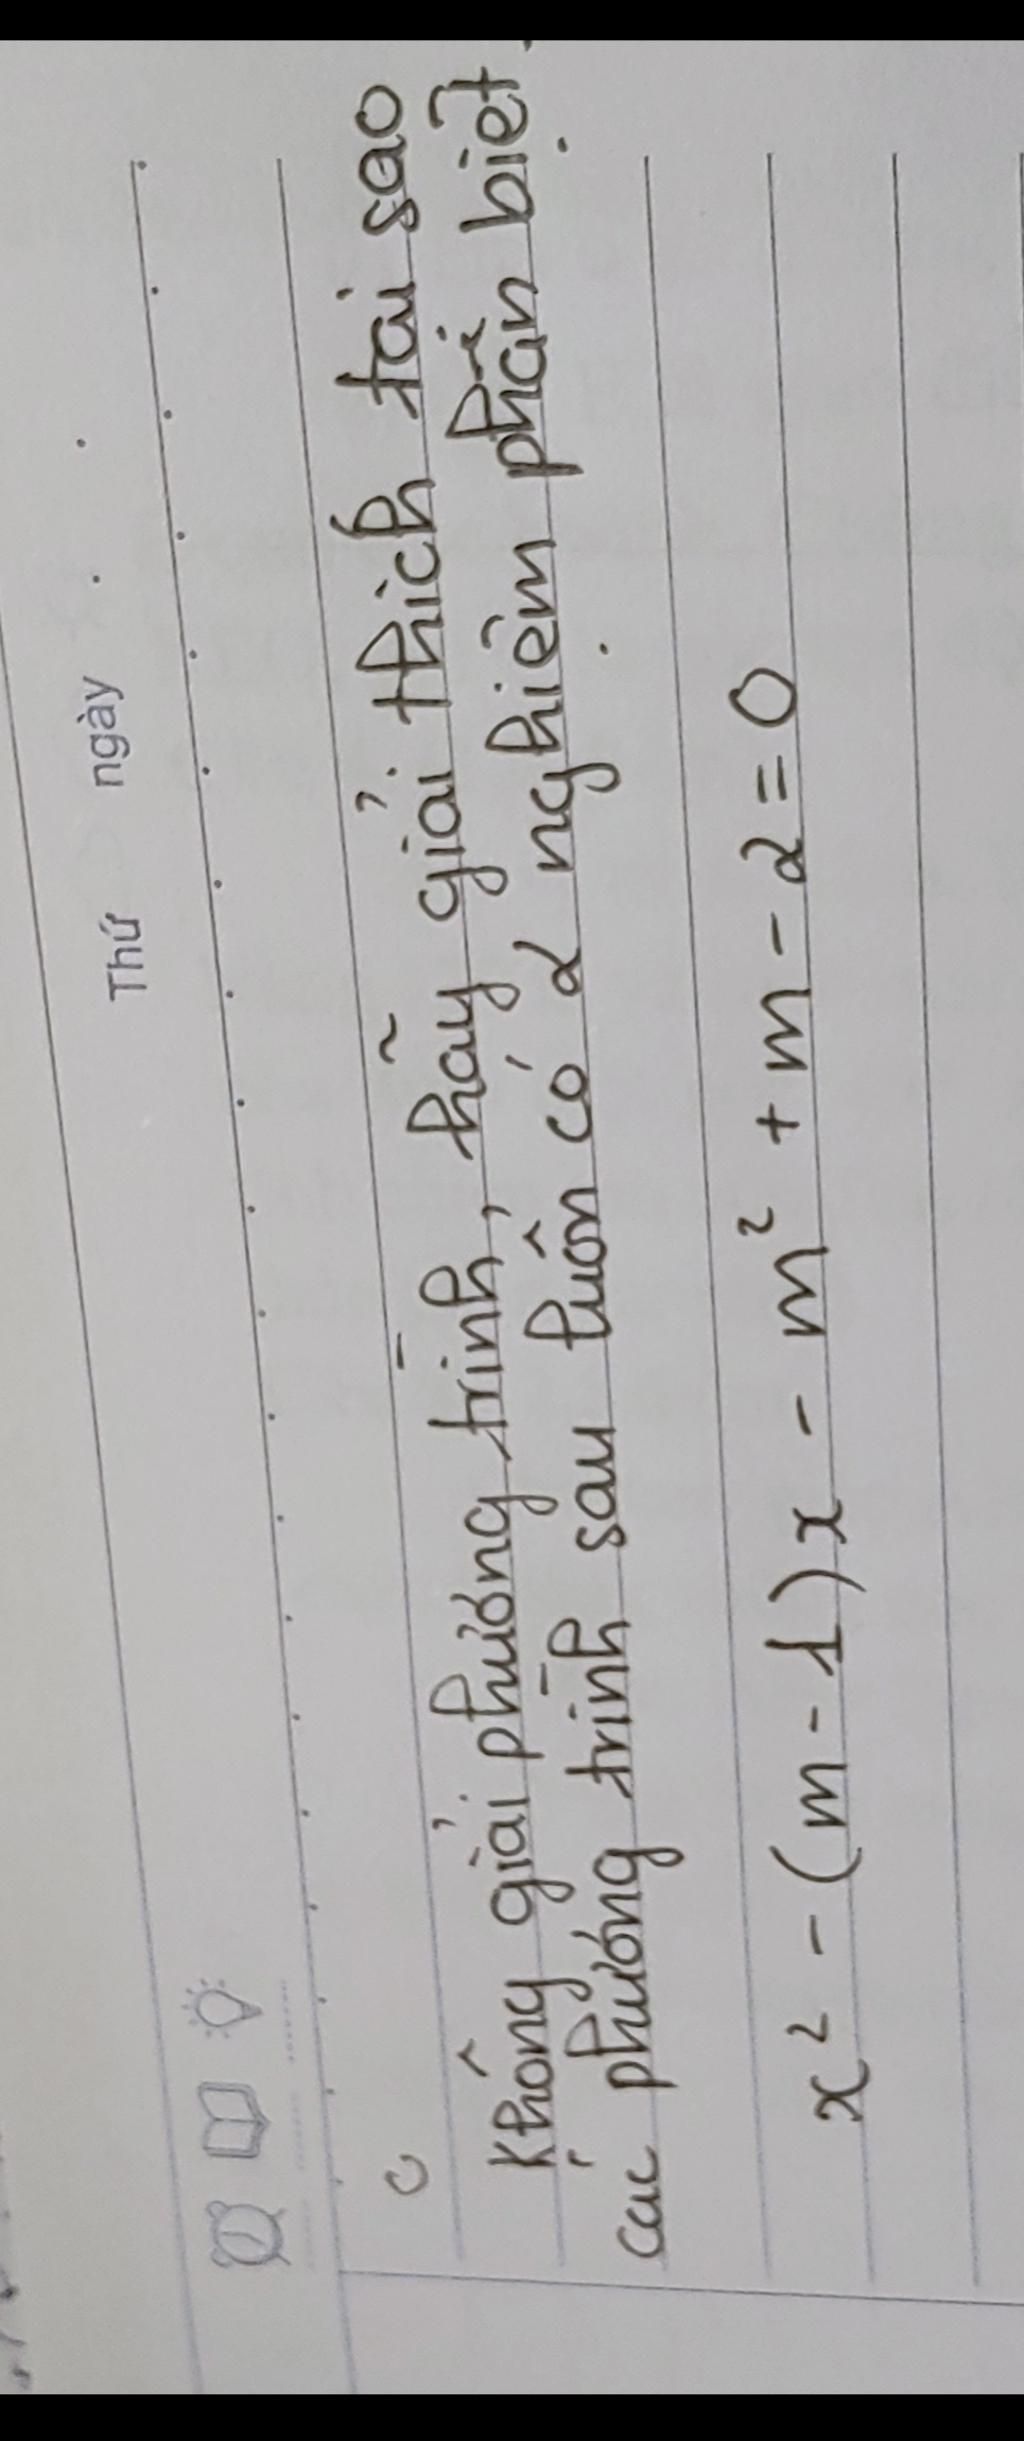 Thứ ngày
Không giải phương trình, hãy giải thích tại sao
các phương trình sau luôn có 2 nghiệm phân biệt.
x² - (m - 1)x - m² + m - 2 = 0